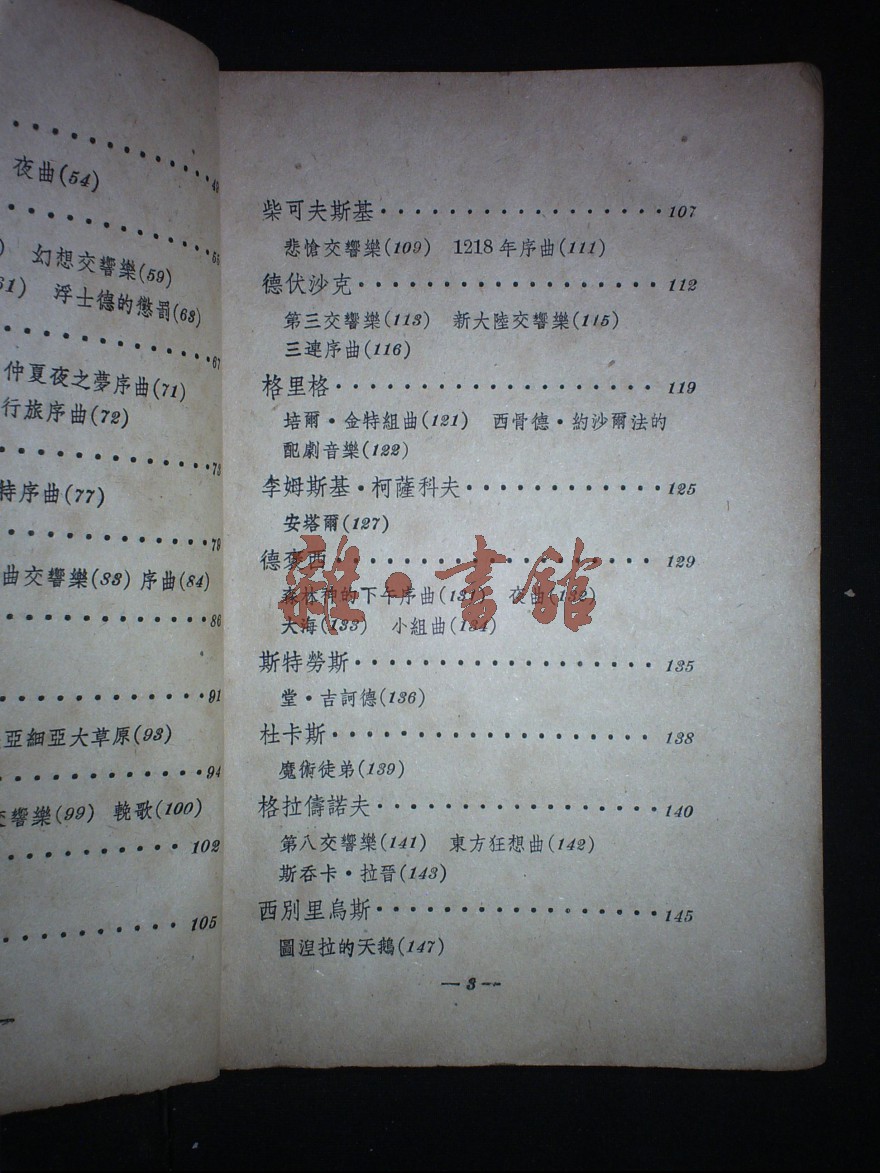 49
夜曲(54)
58
幻想交響樂(59)
61) 浮士德的懲罰(63)
67
仲夏夜之夢序曲(71)
行旅序曲(72)
73
特序曲(77)
79
曲交響樂(83) 序曲(84)
86
91
亞細亞大草原(93)
94
交響樂(99) 輓歌(100)
102
105
柴可夫斯基··················107
悲愴交響樂(109) 1218年序曲(111)
德伏沙克··················112
第三交響樂(113) 新大陸交響樂(115)
三連序曲(116)
格里格··················119
培爾·金特組曲(121) 西骨德·約沙爾法的
配劇音樂(122)
李姆斯基·柯薩科夫············125
安塔爾(127)
德褒西··················129
森林神的下午序曲(131) 夜曲(132)
大海(133) 小組曲(134)
斯特勞斯··················135
堂·吉訶德(136)
杜卡斯··················138
魔術徒弟(139)
格拉儔諾夫··················140
第八交響樂(141) 東方狂想曲(142)
斯吞卡·拉晉(143)
西別里烏斯··················145
圖湼拉的天鵝(147)
—3—
雜·書館